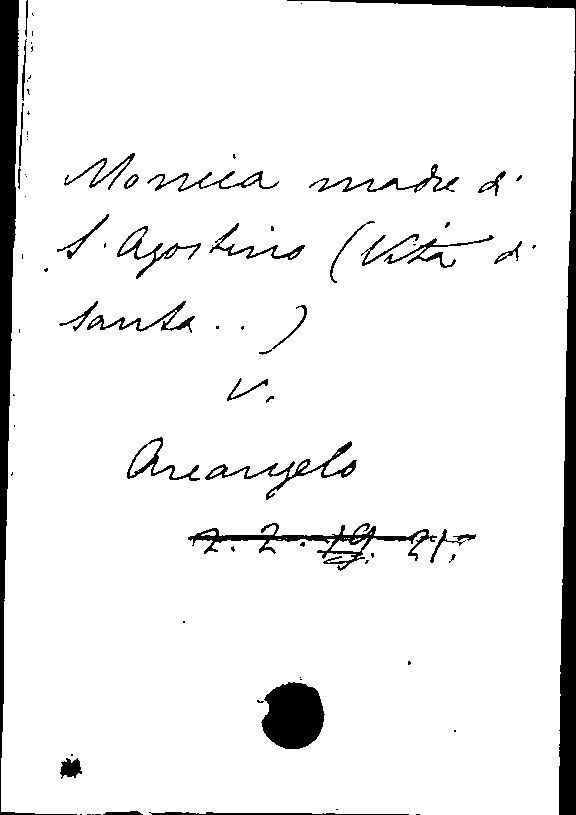 Monica madre di
S. Agostino (Vita di
santa . . )
V.
Arcangelo
2. 2. 19. 21.